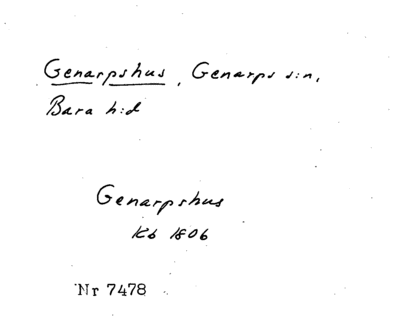 Genarpshus, Genarps s:n,
Bara h:d
Genarpshus
Kb 1806
Nr 7478